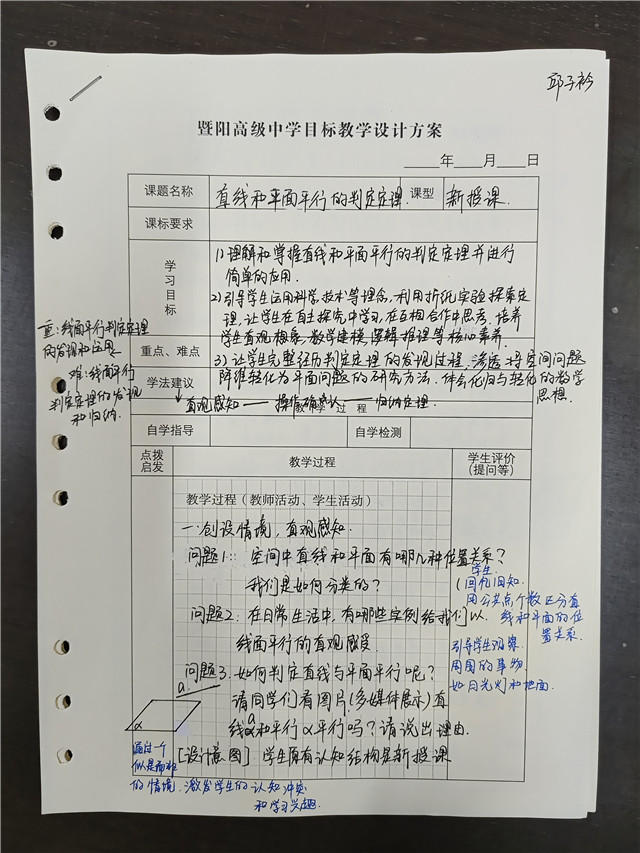 邱子衿
暨阳高级中学目标教学设计方案
____年____月____日
课题名称 直线和平面平行的判定定理. 课型 新授课.
课标要求
学习目标
1) 理解和掌握直线和平面平行的判定定理并进行
简单的应用.
2) 引导学生运用科学,技术等理念,利用折纸实验探索定
理,让学生在自主探究中学习,在互相合作中思考,培养
学生直观想象,数学建模,逻辑推理等核心素养.
3) 让学生完整经历判定定理的发现过程,渗透将空间问题
降维转化为平面问题的研究方法.体会化归与转化的数学
思想.
重点、难点
重:线面平行判定定理
的发现和运用
难:线面平行
判定定理的发现
和归纳.
学法建议
直观感知——操作确认——归纳定理.
教 学 过 程
自学指导 自学检测
点拨启发 教学过程 学生评价(提问等)
教学过程(教师活动、学生活动)
一.创设情境,直观感知.
问题1: 空间中直线和平面有哪几种位置关系?
我们是如何分类的?
学生:
(回忆旧知.
用公共点个数区分直
线和平面的位
置关系
问题2:在日常生活中,有哪些实例给我们以
线面平行的直观感受.
引导学生观察
周围的事物
如日光灯和地面.
问题3.如何判定直线与平面平行呢?
请同学们看图片(多媒体展示)直
线a和平行α平行吗?请说出理由.
a
α
[设计意图] 学生原有认知结构是新授课
通过一个
似是而非
的情境.激发学生的认知冲突
和学习兴趣.